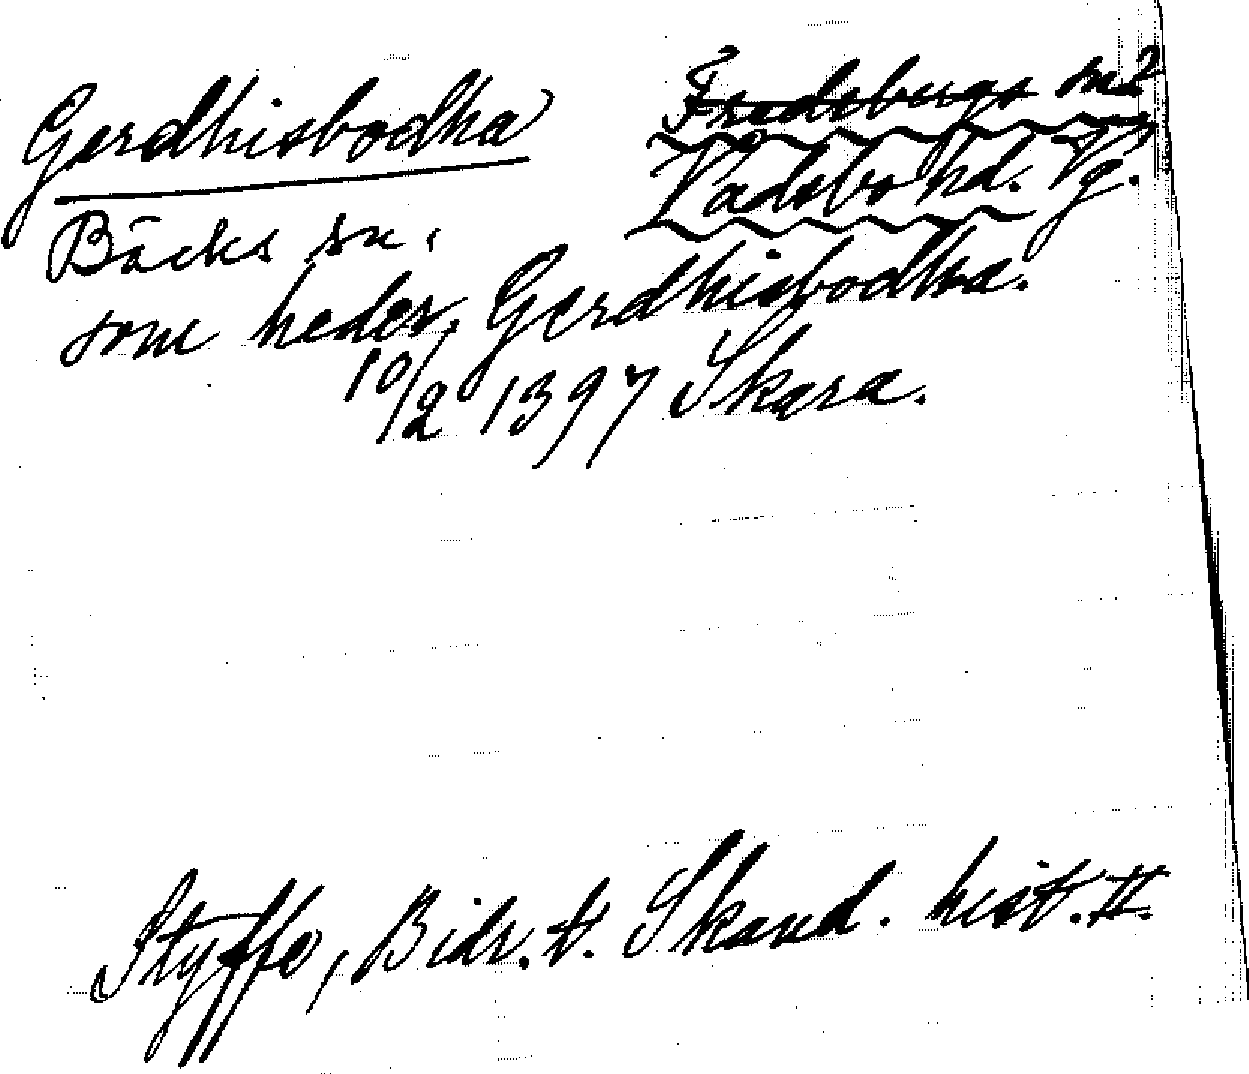 Gerdhisbodha Fredsbergs sn?
Vadsbo hd. Vg.
Bäcks sn.
som heder, Gerdhisbodha.
10/2 1397 Skara.
Styffe, Bidr. t. Skand. hist. II.